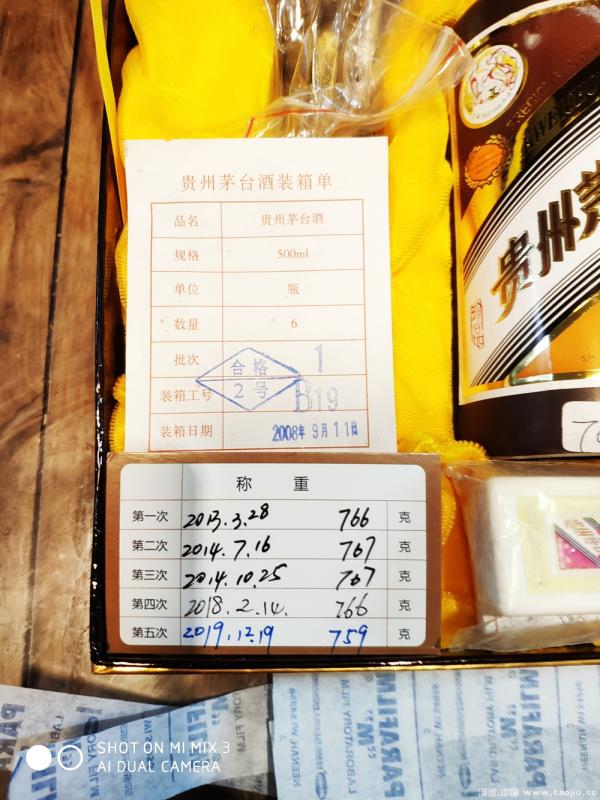 贵州茅台酒装箱单
品名 贵州茅台酒
规格 500ml
单位 瓶
数量 6
批次 1
合格
2号
装箱工号 B19
装箱日期 2008年9月11日
称 重
第一次 2013.3.28 766 克
第二次 2014.7.16 767 克
第三次 2014.10.25 767 克
第四次 2018.2.14. 766 克
第五次 2019.12.19 759 克
贵州茅
PARAFILM
LABORATORY FILM
NEENAH, WI 54956
PARAFILM
SHOT ON MI MIX 3
AI DUAL CAMERA
www.taojiu.cc